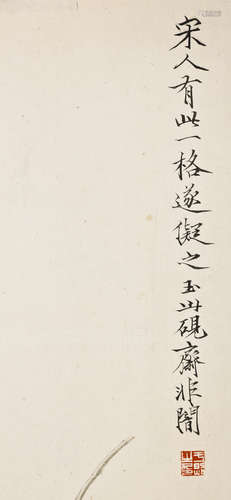 宋人有此一格遂儗之玉山硯齋非闇